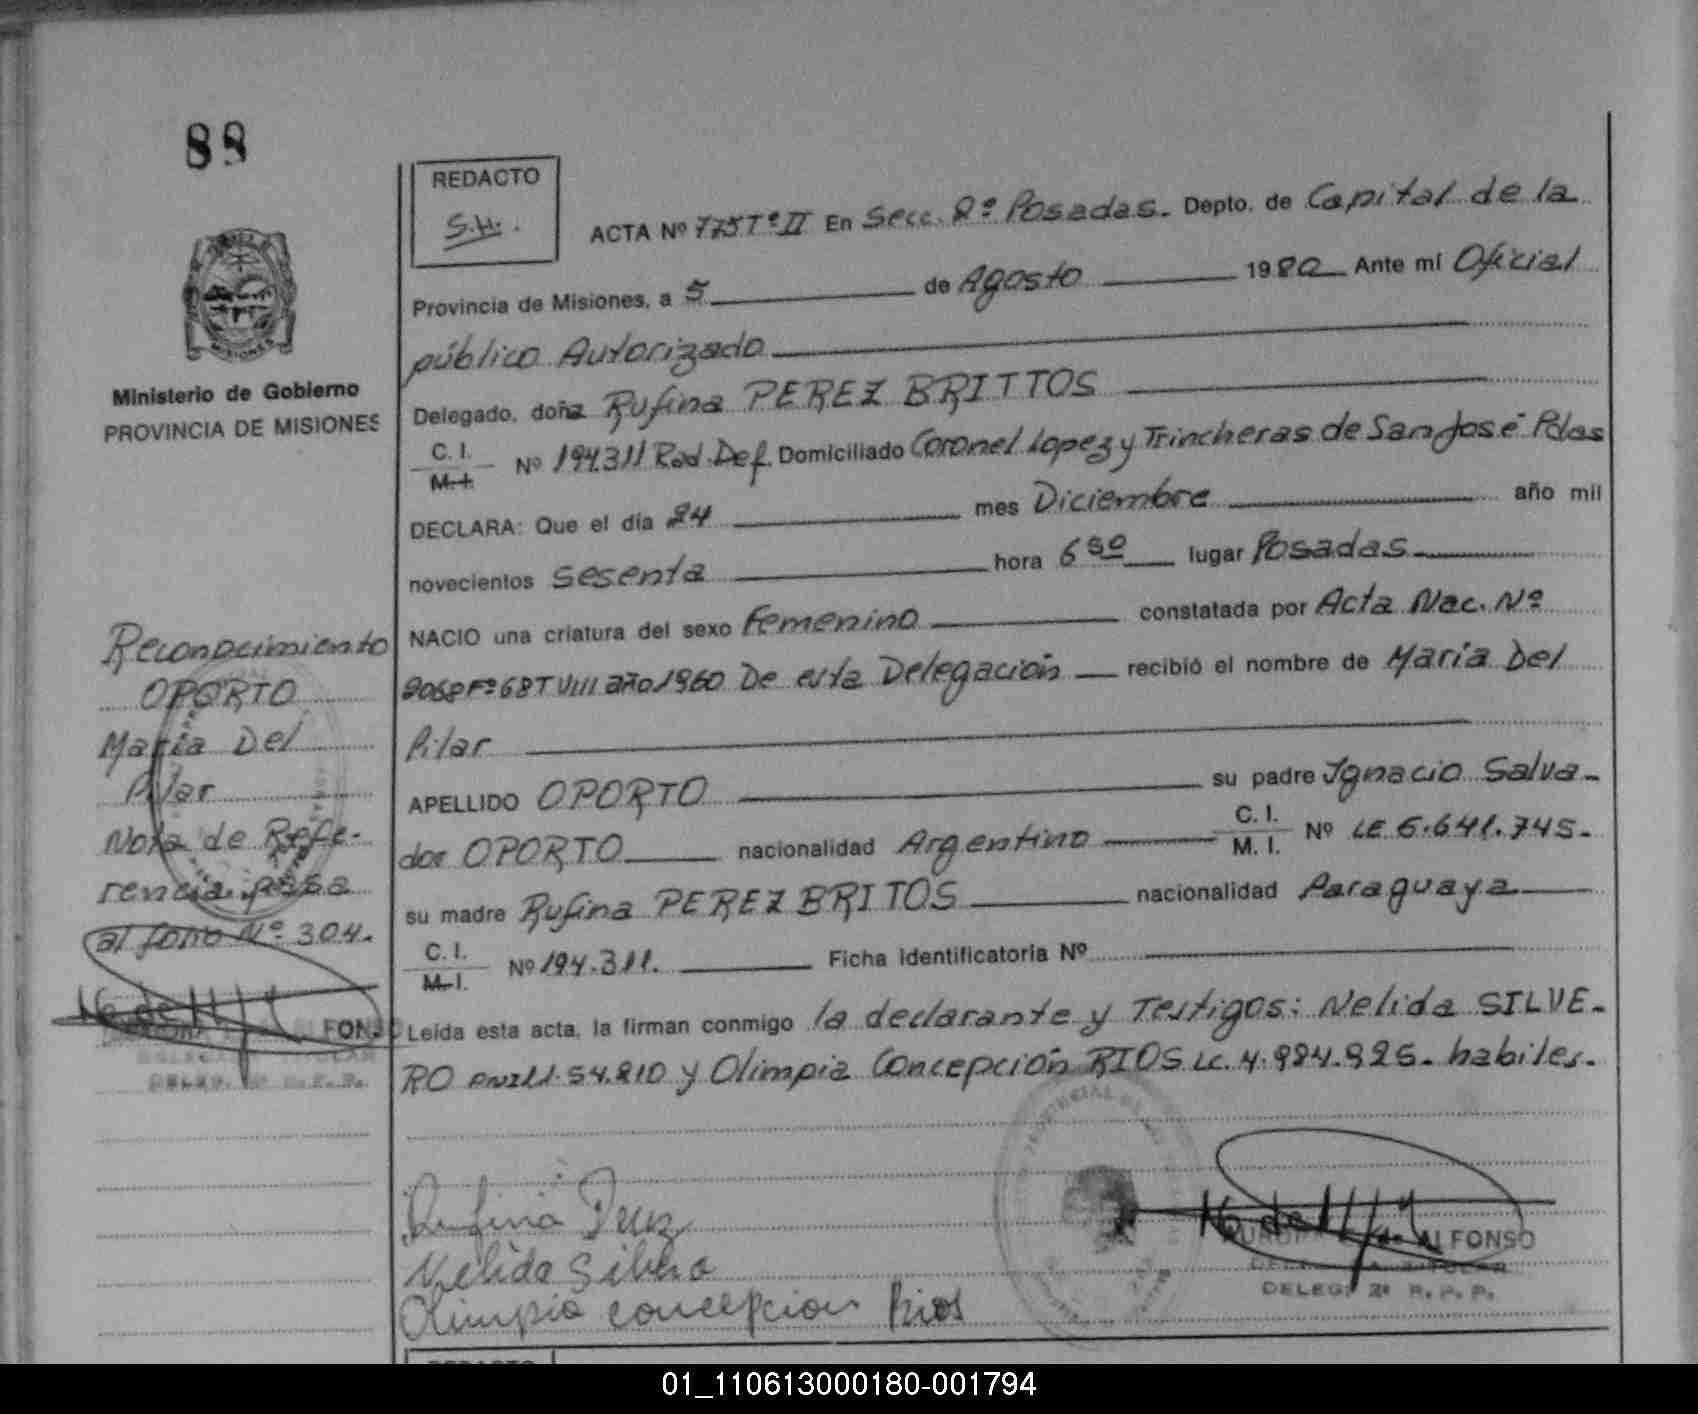 88
REDACTO
S.H.
ACTA Nº 775 Tº II En Secc. 2º Posadas. Depto. de Capital de la
Provincia de Misiones, a 5 de Agosto 1980 Ante mí Oficial
público Autorizado
Delegado, doña Rufina PEREZ BRITTOS
C. I.
M. I. Nº 194.311 Rad. Def. Domiciliado Coronel Lopez y Trincheras de San José Pdas
DECLARA: Que el día 24 mes Diciembre año mil
novecientos sesenta hora 6 30 lugar Posadas
NACIO una criatura del sexo Femenino constatada por Acta Nac. Nº
2068 Fº 68 T VIII año 1960 De esta Delegación recibió el nombre de María Del
Pilar
APELLIDO OPORTO su padre Ignacio Salva-
dor OPORTO nacionalidad Argentino C. I.
M. I. Nº LE 5.641.745-
su madre Rufina PEREZ BRITOS nacionalidad Paraguaya
C. I.
M. I. Nº 194.311. Ficha Identificatoria Nº
Leída esta acta, la firman conmigo la declarante y Testigos: Nelida SILVE-
RO 54.210 y Olimpia Concepción RIOS LC. 4.984.925- habiles.
Rufina Perez
Nelida Silvero
Olimpia concepcion Rios
ALFONSO
DELEGADA TITULAR
DELEG. 2ª R. P. P.
MISIONES
Ministerio de Gobierno
PROVINCIA DE MISIONES
Reconocimiento
OPORTO
María Del
Pilar
Nota de Refe-
rencia pasa
al folio Nº 304.
ALFONSO
DELEGADA TITULAR
DELEG. 2ª R. P. P.
REDACTO
01_110613000180-001794